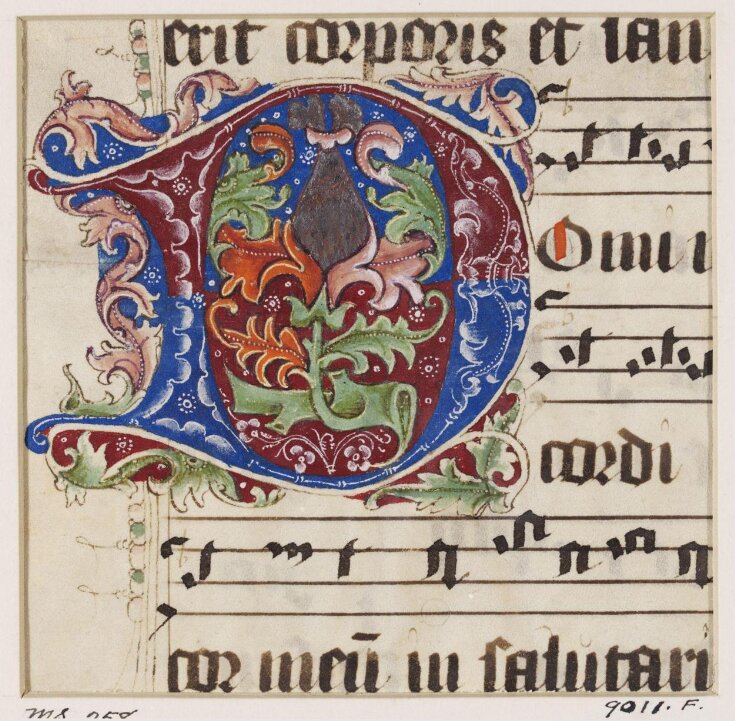 erit corporis et san
D
Omi
cordi
cor meū in salutari
9011. F.